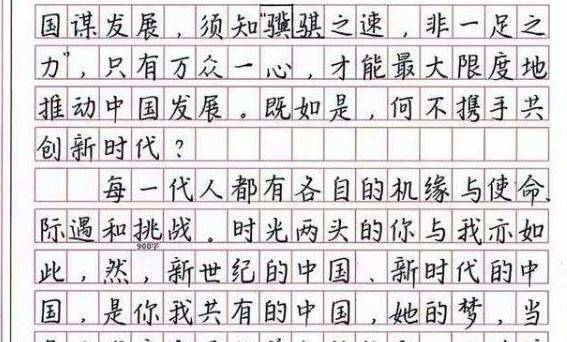 国谋发展，须知"骥骐之速，非一足之
力"，只有万众一心，才能最大限度地
推动中国发展。既如是，何不携手共
创新时代？
每一代人都有各自的机缘与使命、
际遇和挑战。时光两头的你与我亦如
900字
此，然，新世纪的中国、新时代的中
国，是你我共有的中国，她的梦，当